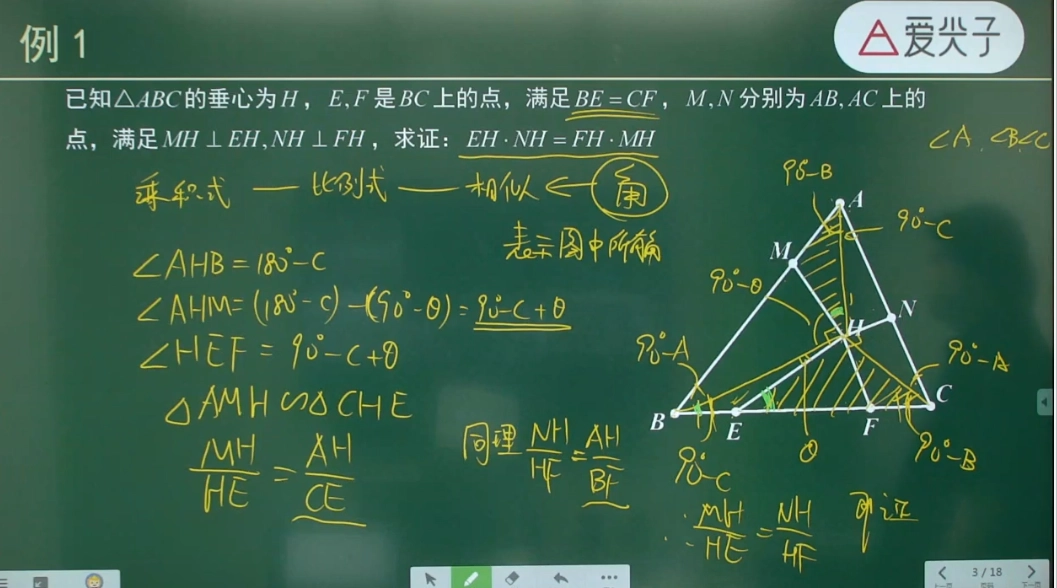 例 1
爱尖子
已知△ABC的垂心为H，E,F是BC上的点，满足BE=CF，M,N分别为AB,AC上的
点，满足MH⊥EH,NH⊥FH，求证：EH·NH=FH·MH
∠A、∠B∠C
乘积式 — 比例式 — 相似 ← 角
表示图中所有角
∠AHB=180°-C
∠AHM=(180°-C)-(90°-θ)=90°-C+θ
∠HEF=90°-C+θ
△AMH∽△CHE
MH/HE=AH/CE
同理 NH/HF=AH/BF
∴MH/HE=NH/HF 即证
90°-B
A
90°-C
M
90°-θ
N
H
90°-A
90°-A
B
E
F
C
90°-C
θ
90°-B
3 / 18